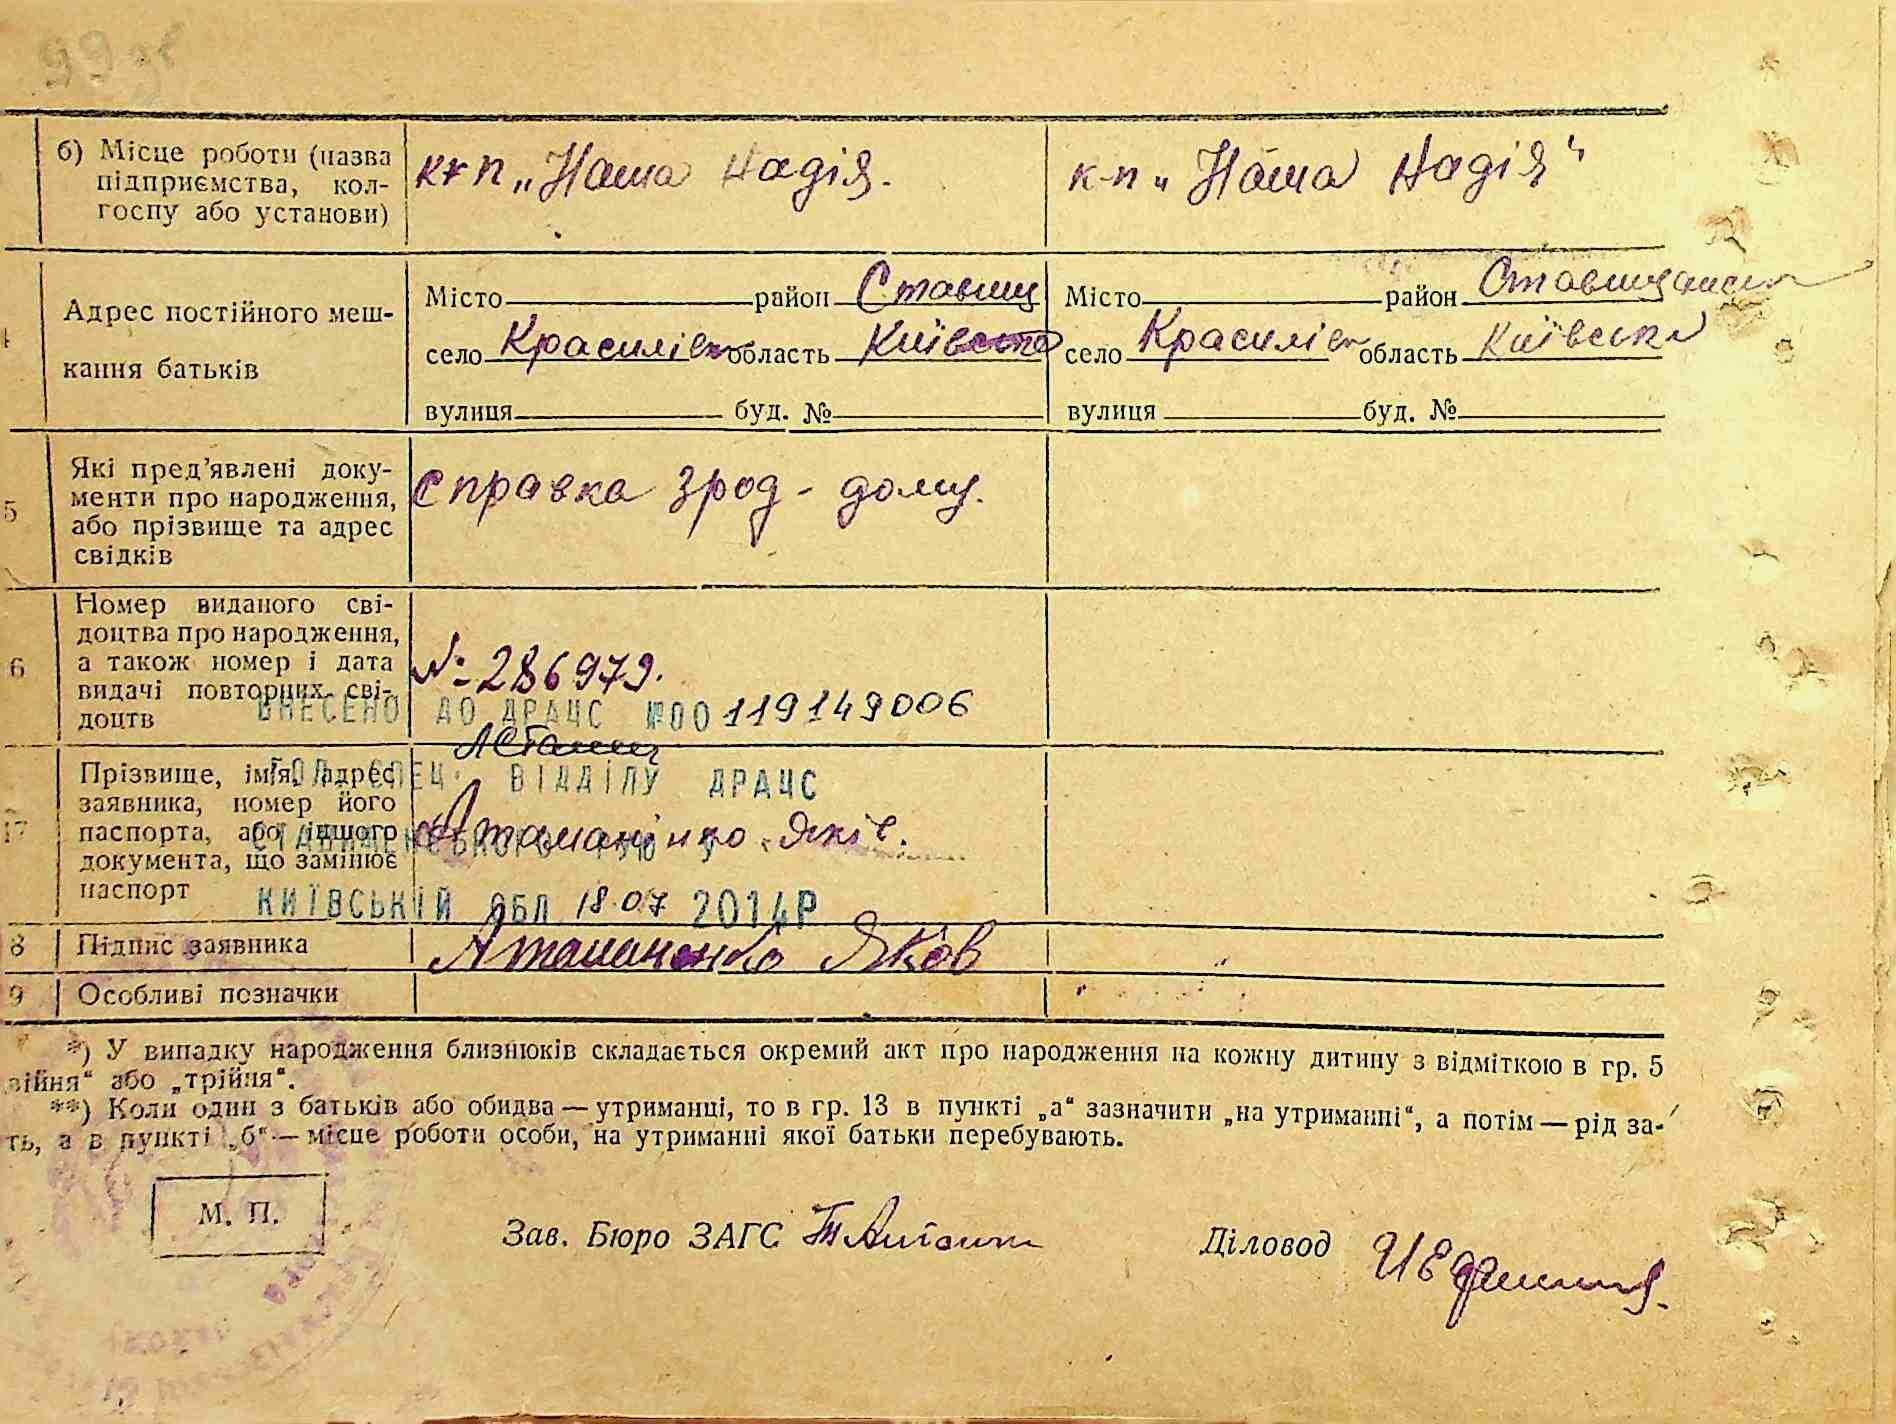 99
б) Місце роботи (назва підприємства, колгоспу або установи)
к-п „Наша Надія.
к-п „Наша Надія“
Адрес постійного меш-
кання батьків
Місто район Ставищ
село Красилів область Київська
вулиця буд. №
Місто район Ставищанськ
село Красилів область Київська
вулиця буд. №
5
Які пред'явлені доку-
менти про народження,
або прізвище та адрес
свідків
справка з род-дому.
6
Номер виданого сві-
доцтва про народження,
а також номер і дата
видачі повторних сві-
доцтв
№ 286979.
ВНЕСЕНО ДО ДРАЦС №00119149006
17
Прізвище, ім'я, адрес
заявника, номер його
паспорта, або іншого
документа, що замінює
паспорт
ГОЛ СПЕЦ. ВІДДІЛУ ДРАЦС
Атаманінко Яків.
КИЇВСЬКІЙ ОБЛ 18 07 2014Р
8
Підпис заявника
Атаманенко Яков
9
Особливі позначки
*) У випадку народження близнюків складається окремий акт про народження на кожну дитину з відміткою в гр. 5
війня“ або „трійня“.
**) Коли один з батьків або обидва — утриманці, то в гр. 13 в пункті „а“ зазначити „на утриманні“, а потім — рід за-
ть, а в пункті „б“ — місце роботи особи, на утриманні якої батьки перебувають.
М. П.
Зав. Бюро ЗАГС
Діловод